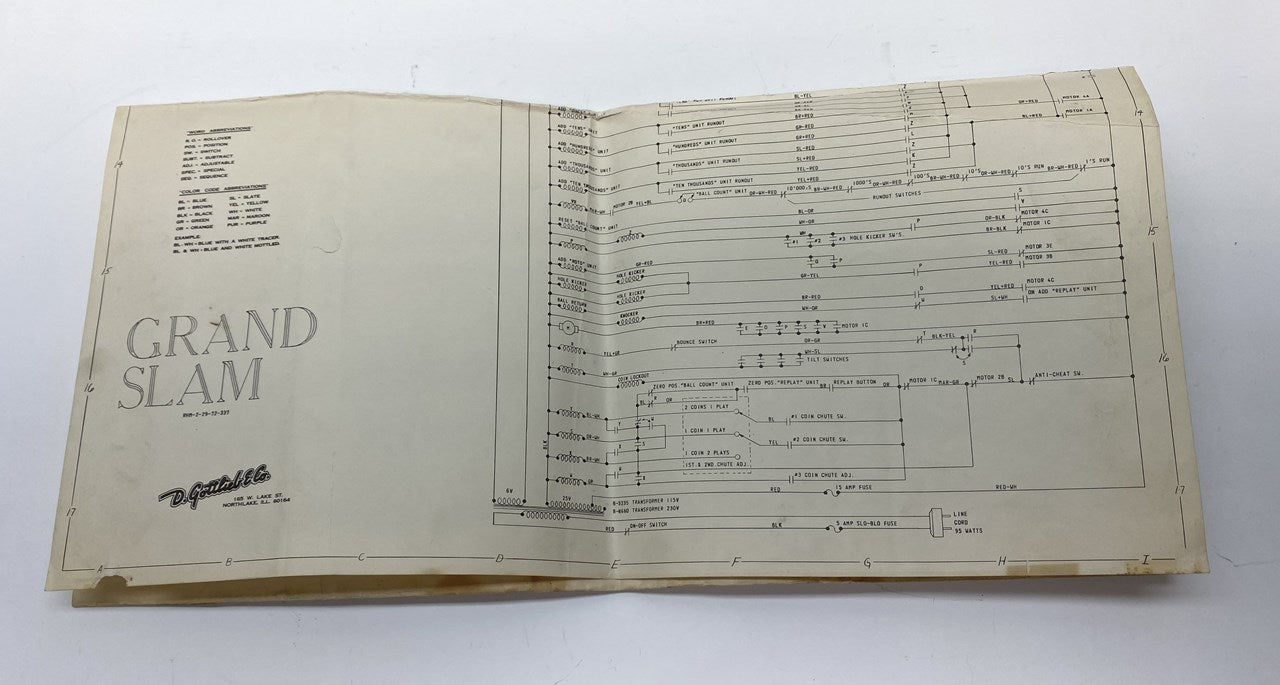 "WORD ABBREVIATIONS"
R.O. - ROLLOVER
POS. - POSITION
SW. - SWITCH
SUBT. - SUBTRACT
ADJ. - ADJUSTABLE
SPEC. - SPECIAL
SEQ. - SEQUENCE
"COLOR CODE ABBREVIATIONS"
BL - BLUE SL - SLATE
BR - BROWN YEL - YELLOW
BLK - BLACK WH - WHITE
GR - GREEN MAR - MAROON
OR - ORANGE PUR - PURPLE
EXAMPLE:
BL-WH - BLUE WITH A WHITE TRACER.
BL & WH - BLUE AND WHITE MOTTLED.
GRAND
SLAM
D. Gottlieb & Co.
165 W. LAKE ST.
NORTHLAKE, ILL. 60164
14
15
16
17
A B C D E F G H I
14
15
16
17
ADD "TENS" UNIT
ADD "HUNDREDS" UNIT
ADD "THOUSANDS" UNIT
ADD "TEN THOUSANDS" UNIT
RESET "BALL COUNT" UNIT
ADD "MOTO" UNIT
HOLE KICKER
BALL RETURN
HOLE KICKER
HOLE KICKER
KNOCKER
COIN LOCKOUT
BL-YEL
BR+RED
"TENS" UNIT RUNOUT
GR-RED
GR+RED
"HUNDREDS" UNIT RUNOUT
SL-RED
"THOUSANDS" UNIT RUNOUT
SL+RED
YEL-RED
"TEN THOUSANDS" UNIT RUNOUT
YEL+RED
OR+RED MOTOR 4A
BL+RED MOTOR 1A
MOTOR 2B YEL+BL "BALL COUNT" UNIT OR-WH-RED 10'000'S BR-WH-RED 1000'S OR-WH-RED 100'S BR-WH-RED 10'S OR-WH-RED 10'S RUN BR-WH-RED 1'S RUN
RUNOUT SWITCHES
BL-OR
WH-OR
OR-BLK MOTOR 4C
WH #1 #2 #3 HOLE KICKER SW'S. BR-BLK MOTOR 1C
GR-RED SL-RED MOTOR 3E
GR-YEL YEL-RED MOTOR 3B
BR-RED YEL+RED MOTOR 4C
WH-OR SL+WH ON ADD "REPLAY" UNIT
BR+RED E O P S V MOTOR 1C
YEL+GR BOUNCE SWITCH OR-GR BLK-YEL R
WH-GR WH-SL
TILT SWITCHES
ZERO POS. "BALL COUNT" UNIT ZERO POS. "REPLAY" UNIT BR REPLAY BUTTON OR MOTOR 1C MAR-GR MOTOR 2B SL ANTI-CHEAT SW.
BL R OR
2 COINS 1 PLAY
BL-WH
BL #1 COIN CHUTE SW.
OR-WH
1 COIN 1 PLAY
YEL #2 COIN CHUTE SW.
BR-WH
1 COIN 2 PLAYS
1ST. & 2ND. CHUTE ADJ.
#3 COIN CHUTE ADJ.
BLK
6V
25V
RED 15 AMP FUSE RED-WH
B-5335 TRANSFORMER 115V
B-8660 TRANSFORMER 230V
RED ON-OFF SWITCH BLK 5 AMP SLO-BLO FUSE
LINE
CORD
95 WATTS